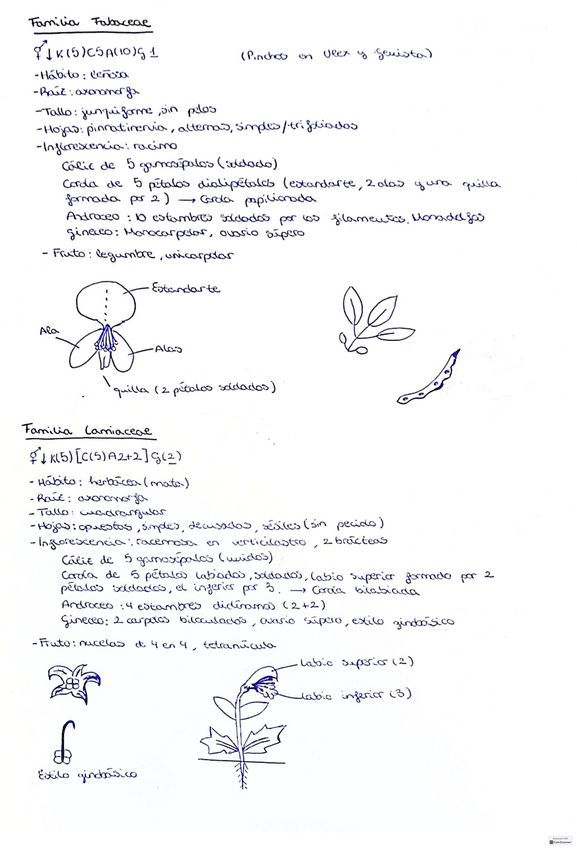 Familia Fabaceae
⚥↓K(5)C5A(10)G1 (Pinchos en Ulex y Genista)
-Hábito: leñosa
-Raíz: axonomorfa
-Tallo: junquiforme, sin pelos
-Hojas: pinnatinervia, alternas, simples/trifoliadas
-Inflorescencia: racimo
Cáliz de 5 gamosépalos (soldado)
Corola de 5 pétalos dialipétalos (estandarte, 2 alas y una quilla
formada por 2) → Corola papilionada
Androceo: 10 estambres soldados por los filamentos. Monadelfos
Gineceo: Monocarpelar, ovario súpero
- Fruto: legumbre, unicarpelar
Estandarte
Ala
Alas
quilla (2 pétalos soldados)
Familia Lamiaceae
⚥↓K(5)[C(5)A2+2]G(2)
- Hábito: herbácea (mata)
- Raíz: axonomorfa
- Tallo: cuadrangular
- Hojas: opuestas, simples, decusadas, sésiles (sin peciolo)
- Inflorescencia: racemosa en verticilastro, 2 brácteas
Cáliz de 5 gamosépalos (unidos)
Corola de 5 pétalos labiados, soldados, labio superior formado por 2
pétalos soldados, el inferior por 3. → Corola bilabiada
Androceo: 4 estambres didínamos (2+2)
Gineceo: 2 carpelos biloculados, ovario súpero, estilo ginobásico
- Fruto: nuculas de 4 en 4, tetranúcula
Labio superior (2)
Labio inferior (3)
Estilo ginobásico
CamScanner